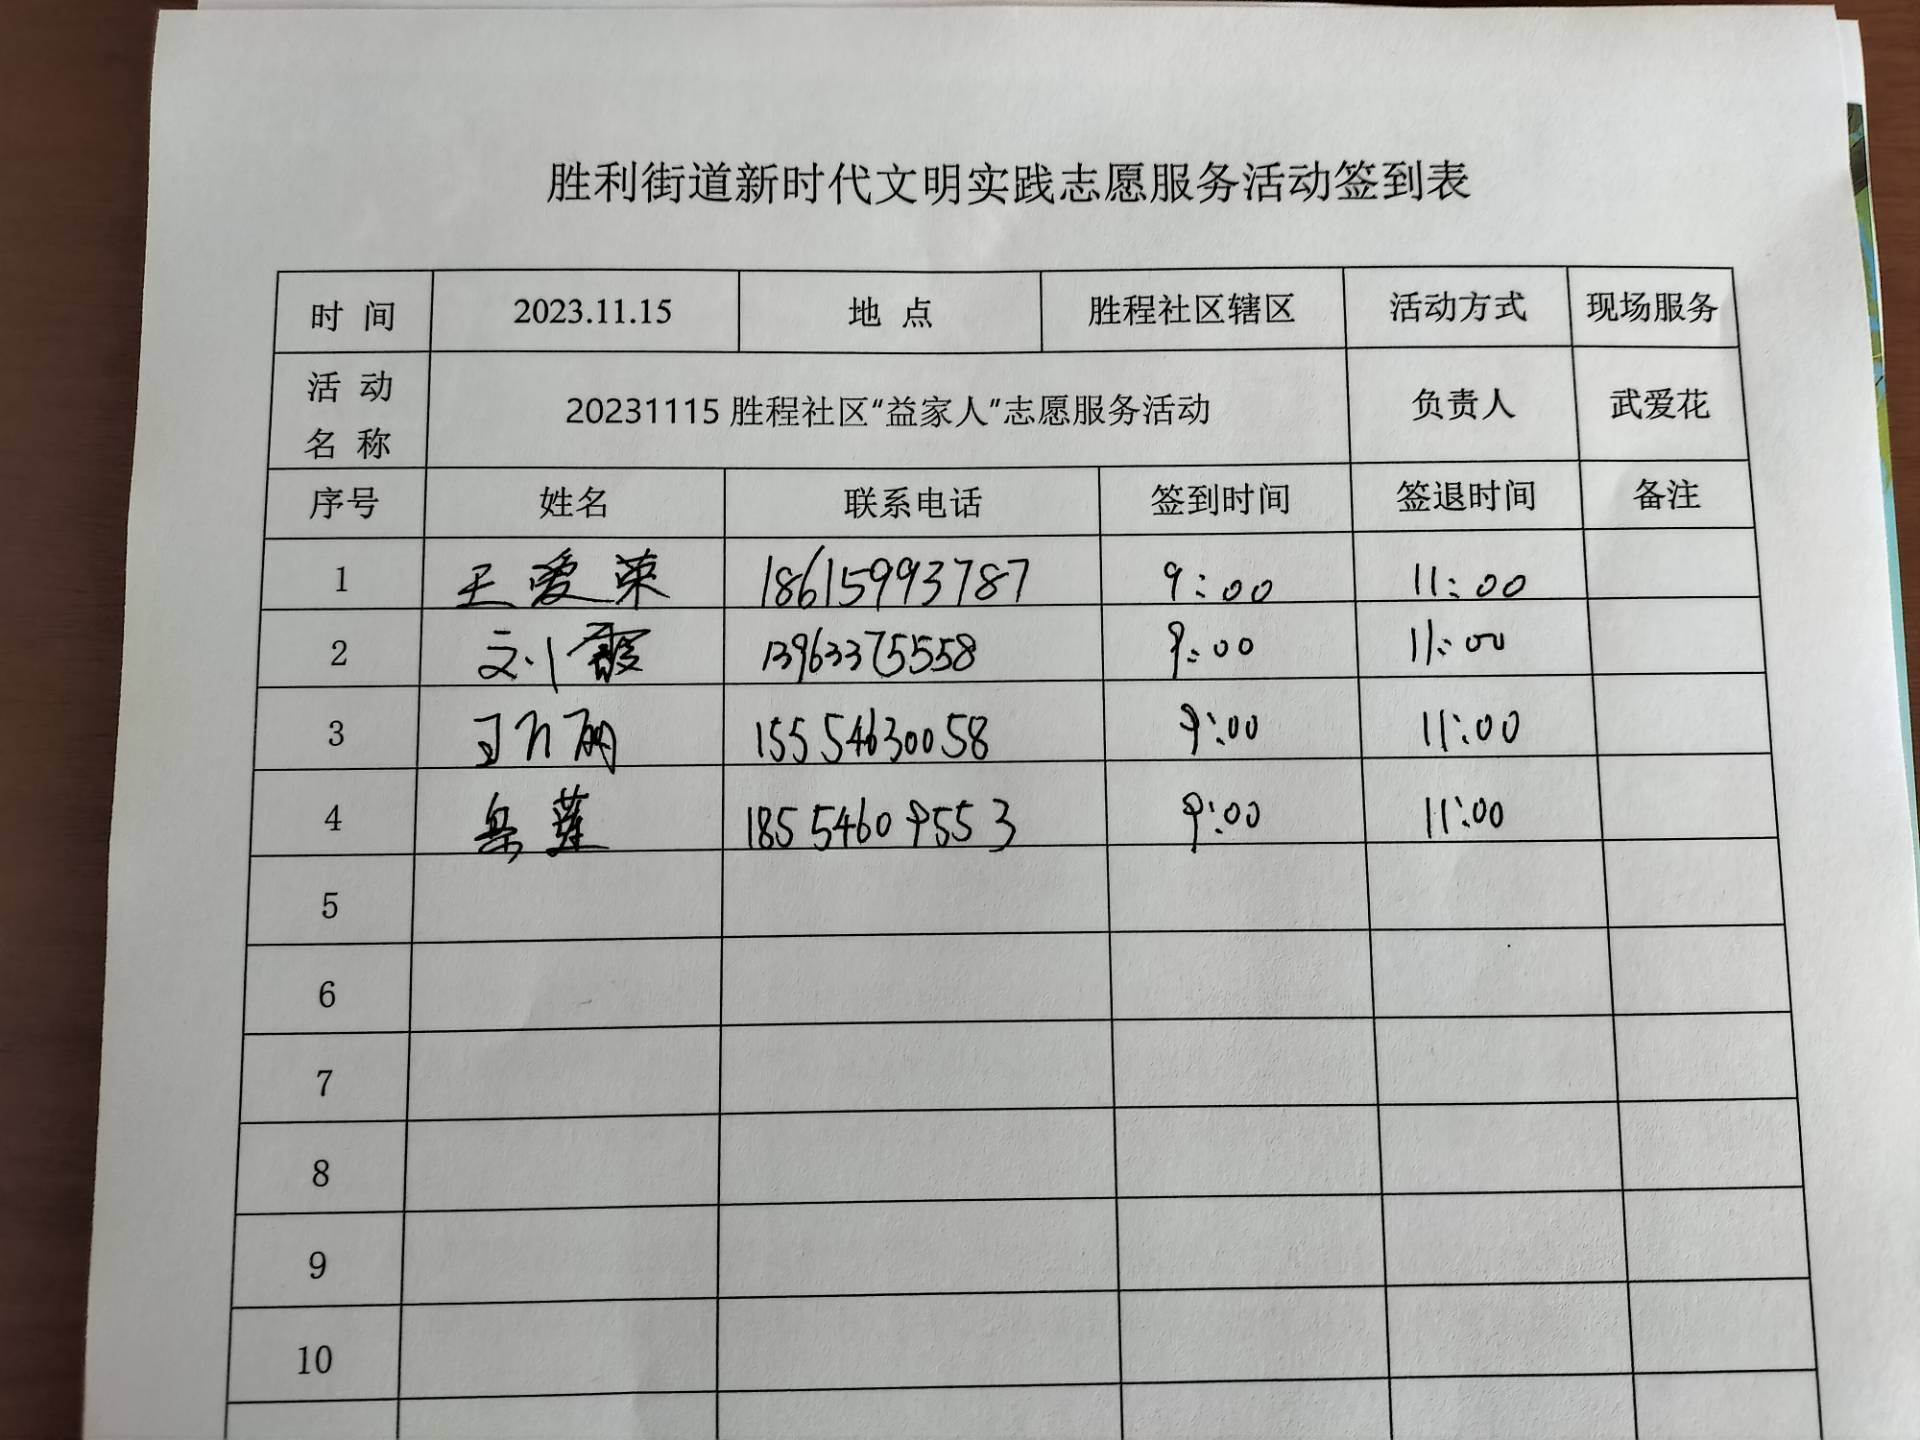 胜利街道新时代文明实践志愿服务活动签到表
时 间 2023.11.15 地 点 胜程社区辖区 活动方式 现场服务
活 动
名 称 20231115 胜程社区“益家人”志愿服务活动 负责人 武爱花
序号 姓名 联系电话 签到时间 签退时间 备注
1 王爱荣 18615993787 9:00 11:00
2 刘霞 13963375558 9:00 11:00
3 15554630058 9:00 11:00
4 岳莲 18554609553 9:00 11:00
5
6
7
8
9
10